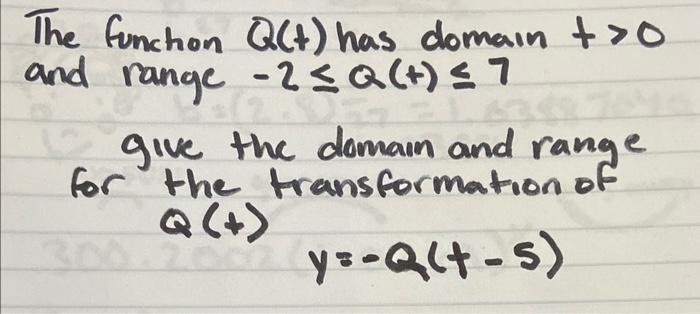 The function Q(t) has domain t > 0
and range -2 ≤ Q(t) ≤ 7
give the domain and range
for the transformation of
Q(t)
y = -Q(t - 5)